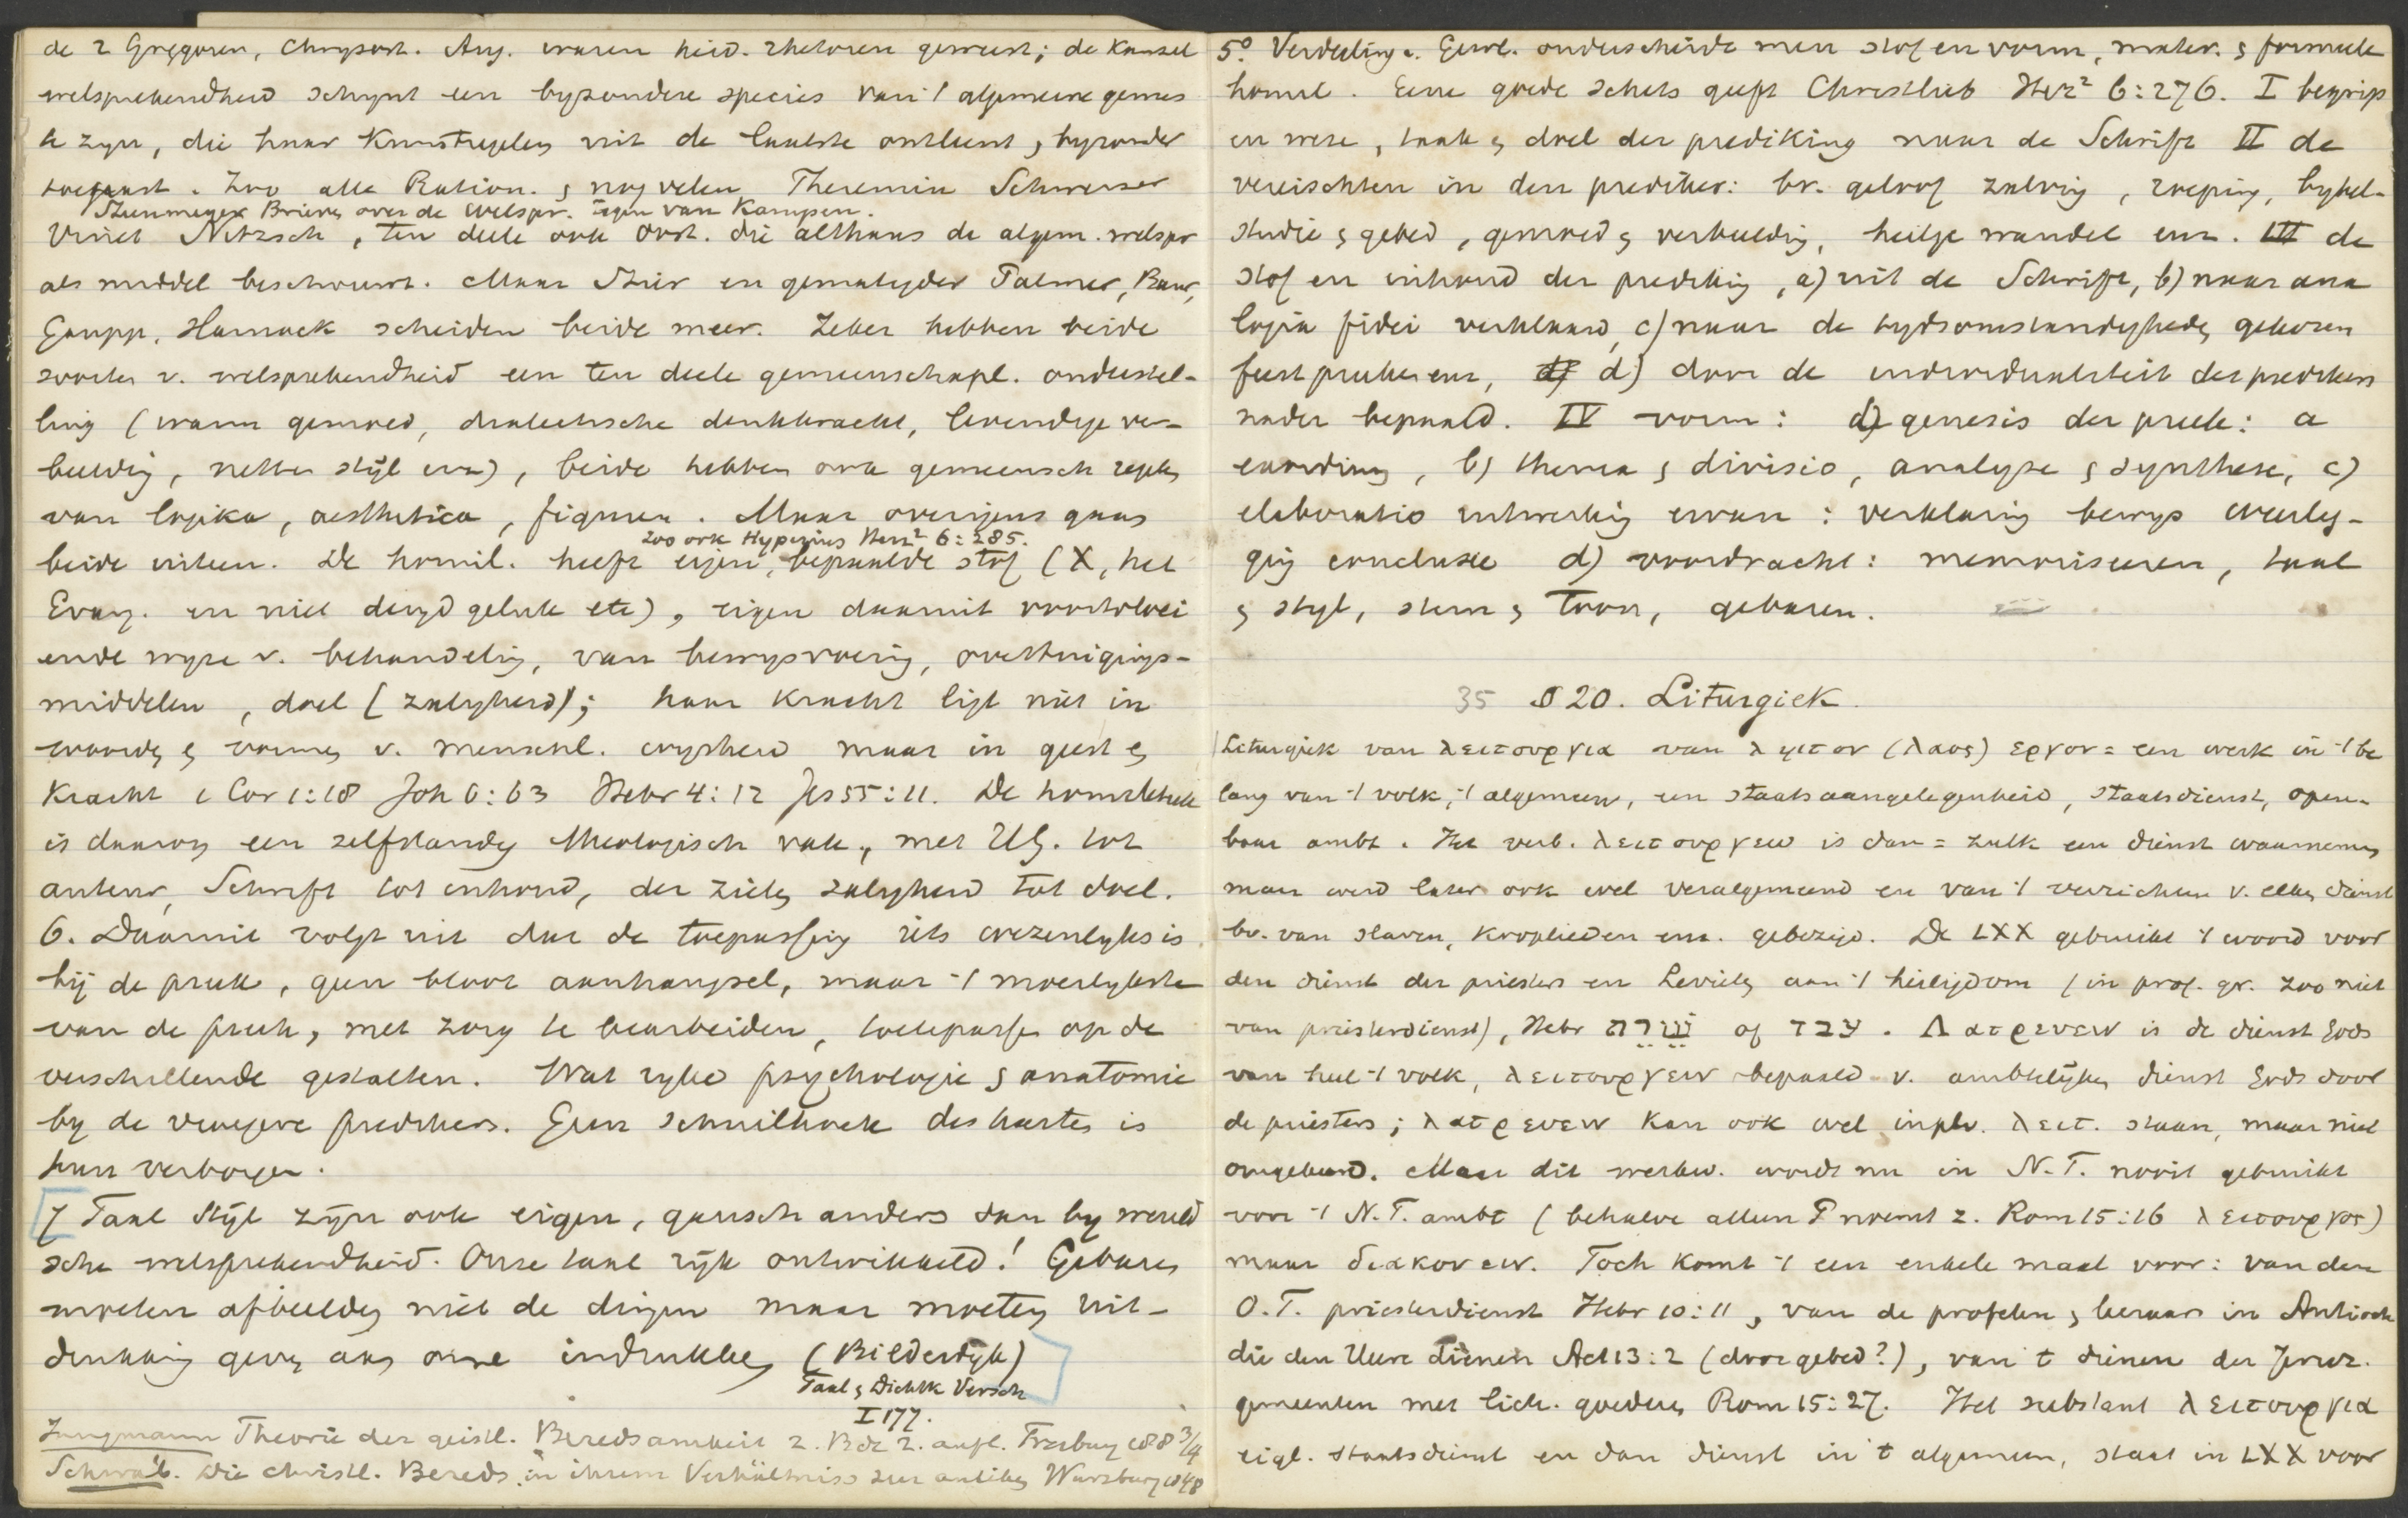 de 2 Gregoren, Chrysost. Aug. waren heid. rhetoren geweest; de kansel
welsprekendheid schynt een byzondere species van 't algemeene genus
te zyn, die haar kunstregelen uit de laatste ontleent & byzonder
toepast. Zoo alle Ration. & nog velen Theremin Schweizer
Steenmeyer Brieven over de welspr. tegen van Kampen.
Vinet Nitzsch, ten deele ook Oost. die althans de algem. welspr
als middel beschouwt. Maar Stier en gematigder Palmer, Baur,
Gaupp, Harnack scheiden beide meer. Zeker hebben beide
soorten v. welsprekendheid een ten deele gemeenschapl. onderstel-
ling (warm gemoed, dialectische denkkracht, levendige ver-
beelding, netten stijl enz), beide hebben ook gemeensch regels
van logika, aesthetica, figuren. Maar overigens gaan
Zoo ook Hyperius Herz² 6:285.
beide uiteen. De homil. heeft eigen, bepaalde stof (X, het
Evang. en niet deugd geluk etc), eigen daaruit voortvloei
ende wyze v. behandeling, van bewysvoering, overtuigings-
middelen, doel (zaligheid); haar kracht ligt niet in
woorden & vormen v. menschl. wysheid maar in geest &
kracht 1 Cor 1:18 Joh 6:63 Hebr 4:12 Jes 55:11. De homiletiek
is daarom een zelfstandig theologisch vak, met HG. tot
auteur, Schrift tot inhoud, der zielen zaligheid tot doel.
6. Daaruit volgt uit dat de toepassing iets wezenlyks is
bij de preek, geen bloot aanhangsel, maar 't moeilykste
van de preek, met zorg te bearbeiden, toetepassen op de
verschillende gestalten. Wat ryke psychologie & anatomie
by de vroegere predikers. Geen schuilhoek des harten is
hun verborgen.
7 Taal Stijl zijn ook eigen, gansch anders dan by wereld
sche welsprekendheid. Onze taal rijk ontwikkeld! Gebaren
moeten afbeelden niet de dingen maar moeten uit-
drukking geven aan onze indrukken (Bilderdijk)
Taal & Dichtk Versch
I 177.
Jungmann Theorie der geistl. Beredsamkeit 2. Bde 2. aufl. Freiburg 1883/4
Schwab. Die christl. Bereds. in ihrem Verhältniss zur antiken Wurzburg 1848
5º. Verdeeling. Gewl. onderscheide men stof en vorm, mater. & formeele
homil. Eene goede schets geeft Christlieb Herz² 6:276. I begrip
en weze, taak & doel der prediking naar de Schrift II de
vereischten in den prediker: bv. geloof zalving, roeping, bybel-
studie & gebed, gemoed & verbeelding, heilige wandel enz. III de
stof en inhoud der prediking, a) uit de Schrift, b) naar ana
logia fidei verklaard, c) naar de tydsomstandigheden gekozen
feestpreken enz, d) door de individualiteit des predikers
nader bepaald. IV vorm: genesis der preek: a
, b) thema & divisio, analyse & synthese, c)
elaboratio uitwerking ervan: verklaring bewys weerleg-
ging conclusie d) voordracht: memoriseren, taal
& styl, stem & toon, gebaren.
35 § 20. Liturgiek.
Liturgiek van λειτουργια van ληιτον (λαος) εργον = een werk in 't be
lang van 't volk, 't algemeen, een staatsaangelegenheid, staatsdienst, open-
baar ambt. Het verb. λειτουργεω is dan = zulk een dienst waarnemen
maar werd later ook wel veralgemeend en van 't verrichten v. elken dienst
bv. van slaven, kroplieden enz. gebezigd. De LXX gebruikt 't woord voor
den dienst der priesters en Levieten aan 't heiligdom (in prof. gr. zoo niet
van priesterdienst), Hebr שרת of עבד. Λατρευειν is de dienst Gods
van heel 't volk, λειτουργειν bepaald v. ambtelijken dienst Gods door
de priesters; λατρευειν kan ook wel inplv. λειτ. staan, maar niet
omgekeerd. Maar dit werkw. wordt nu in N.T. nooit gebruikt
voor 't N.T. ambt (behalve alleen P noemt z. Rom 15:16 λειτουργος)
maar διακονειν. Toch komt 't een enkele maal voor: van den
O.T. priesterdienst Hebr 10:11, van de profeten & leeraars in Antioch
die den Heere dienen Act 13:2 (door gebed?), van 't dienen der Jeruz.
gemeenten met lich. goederen Rom 15:27. Het substant λειτουργια
eigl. staatsdienst en dan dienst in 't algemeen, staat in LXX voor